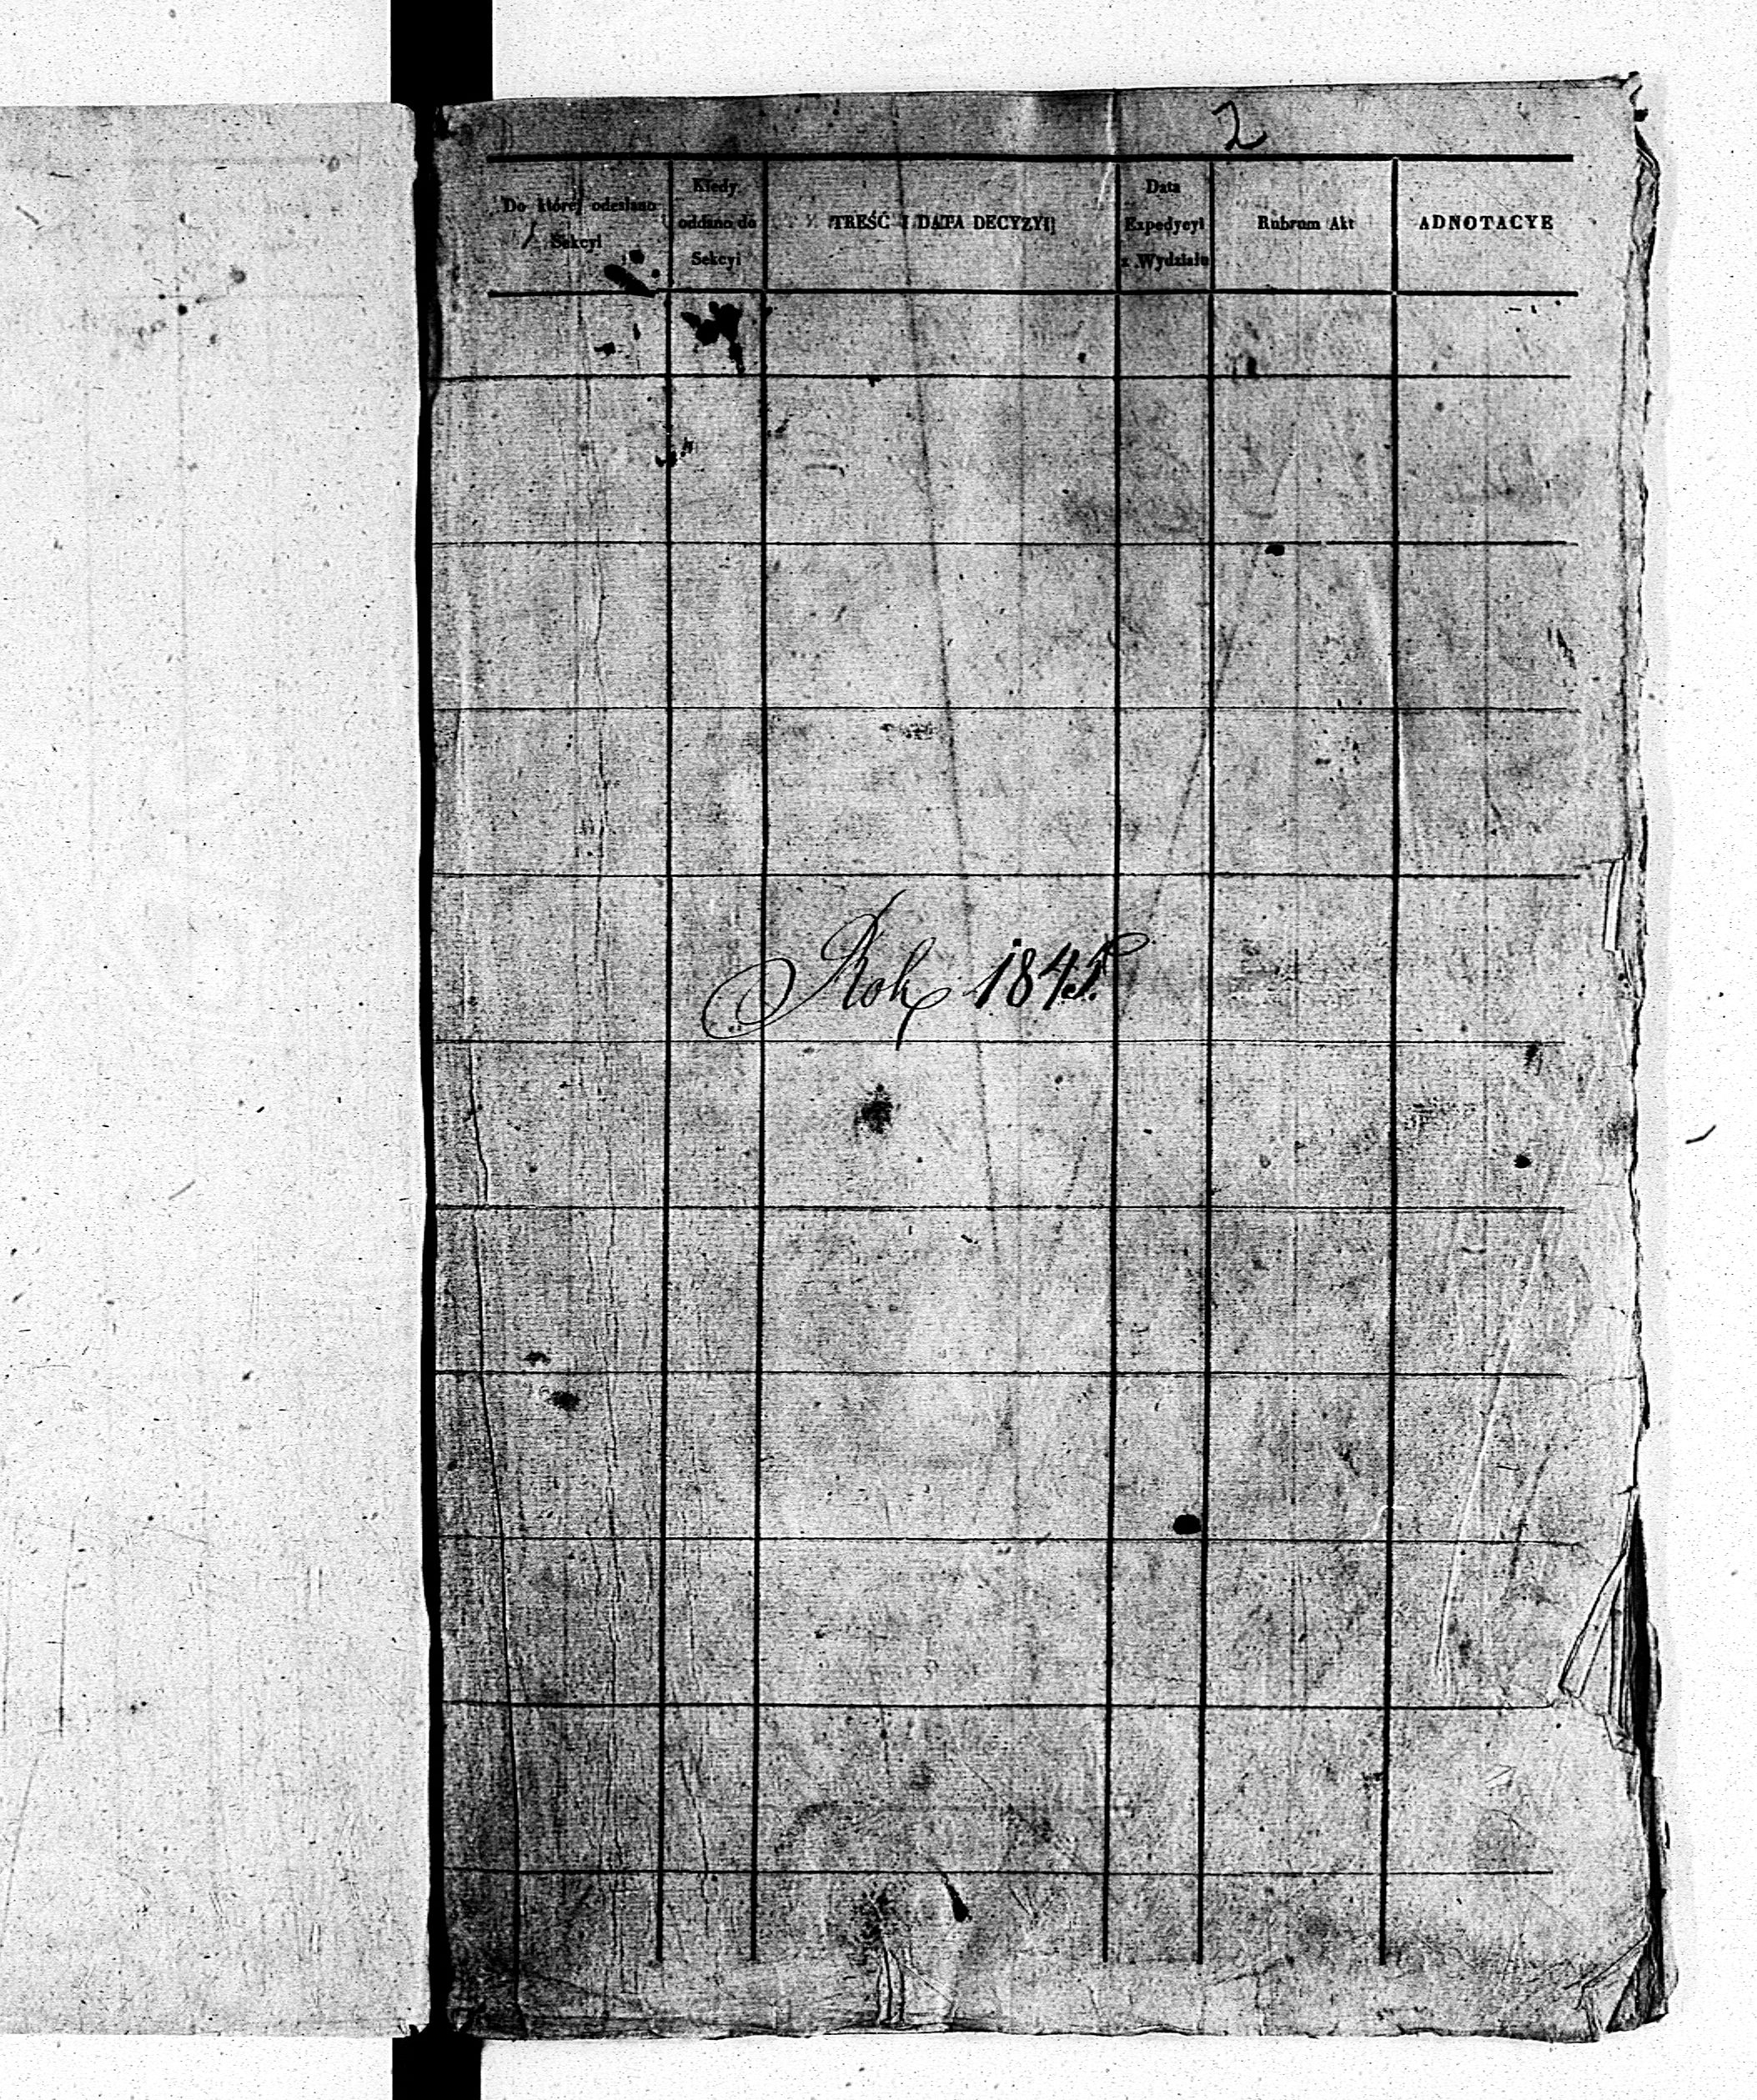 2
Do której odesłano
Sekcyi
Kiedy
oddano do
Sekcyi
TREŚĆ I DATA DECYZYI
Data
Expedycyi
z Wydziału
Rubrum Akt
ADNOTACYE
Rok